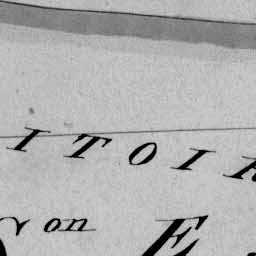 ITOIR
Son E